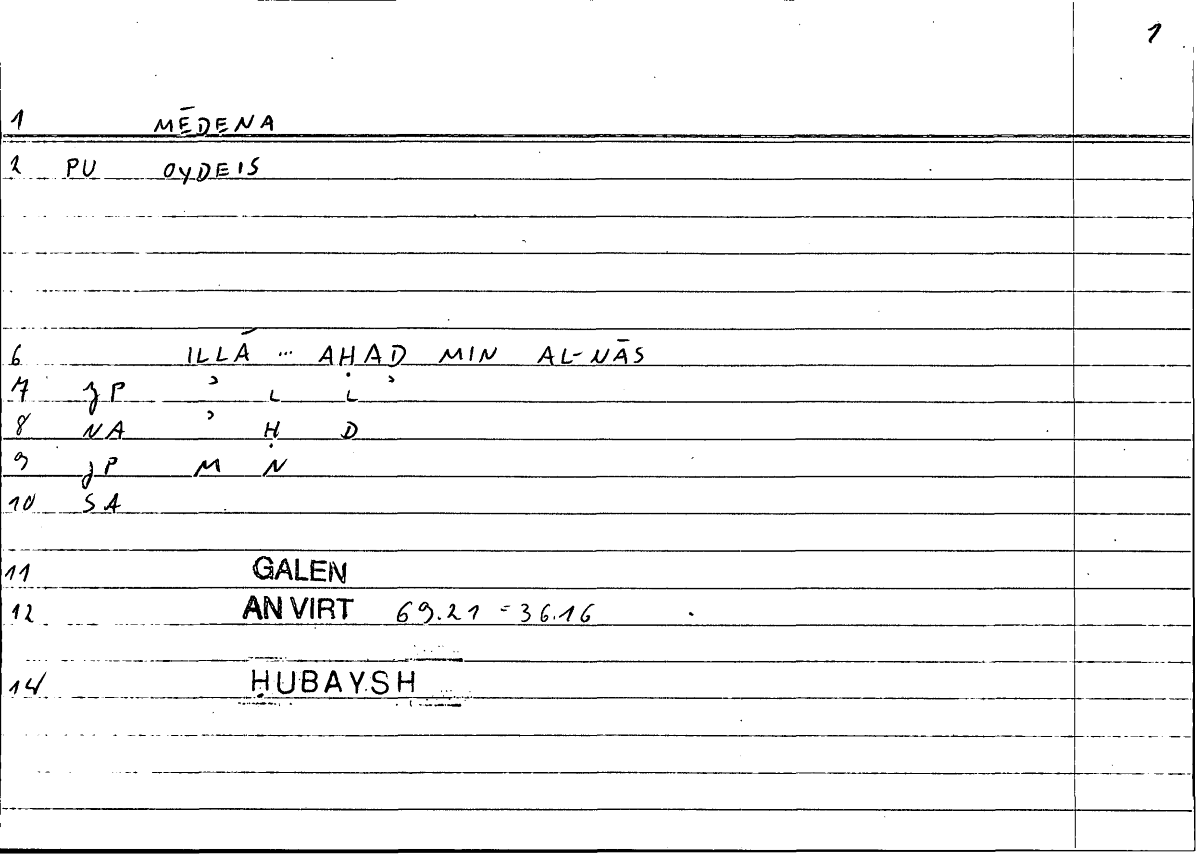 1
1 MĒDENA
2 PU OYDEIS
6 ILLĀ ... AḤAD MIN AL-NĀS
7 JP ʾ L L ʾ
8 NA ʾ Ḥ D
9 JP M N
10 SA
11 GALEN
12 AN VIRT 69.21 = 36.16
14 ḤUBAYSH